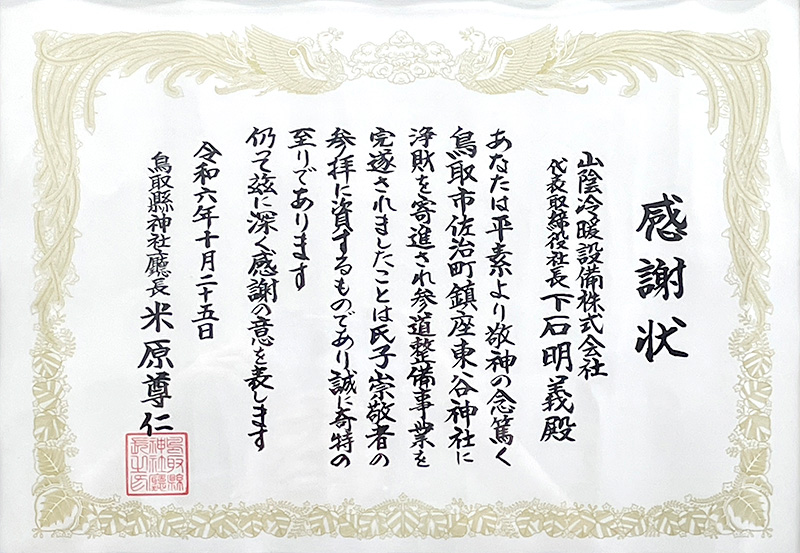 感謝状
山陰冷暖設備株式会社
代表取締役社長 下石明義殿
あなたは平素より敬神の念篤く
鳥取市佐治町鎮座東谷神社に
浄財を寄進され参道整備事業を
完遂されましたことは氏子崇敬者の
参拝に資するものであり誠に奇特の
至りであります
仍て玆に深く感謝の意を表します
令和六年十月二十五日
鳥取縣神社廳長 米原尊仁
鳥取縣
神社廳
長之印